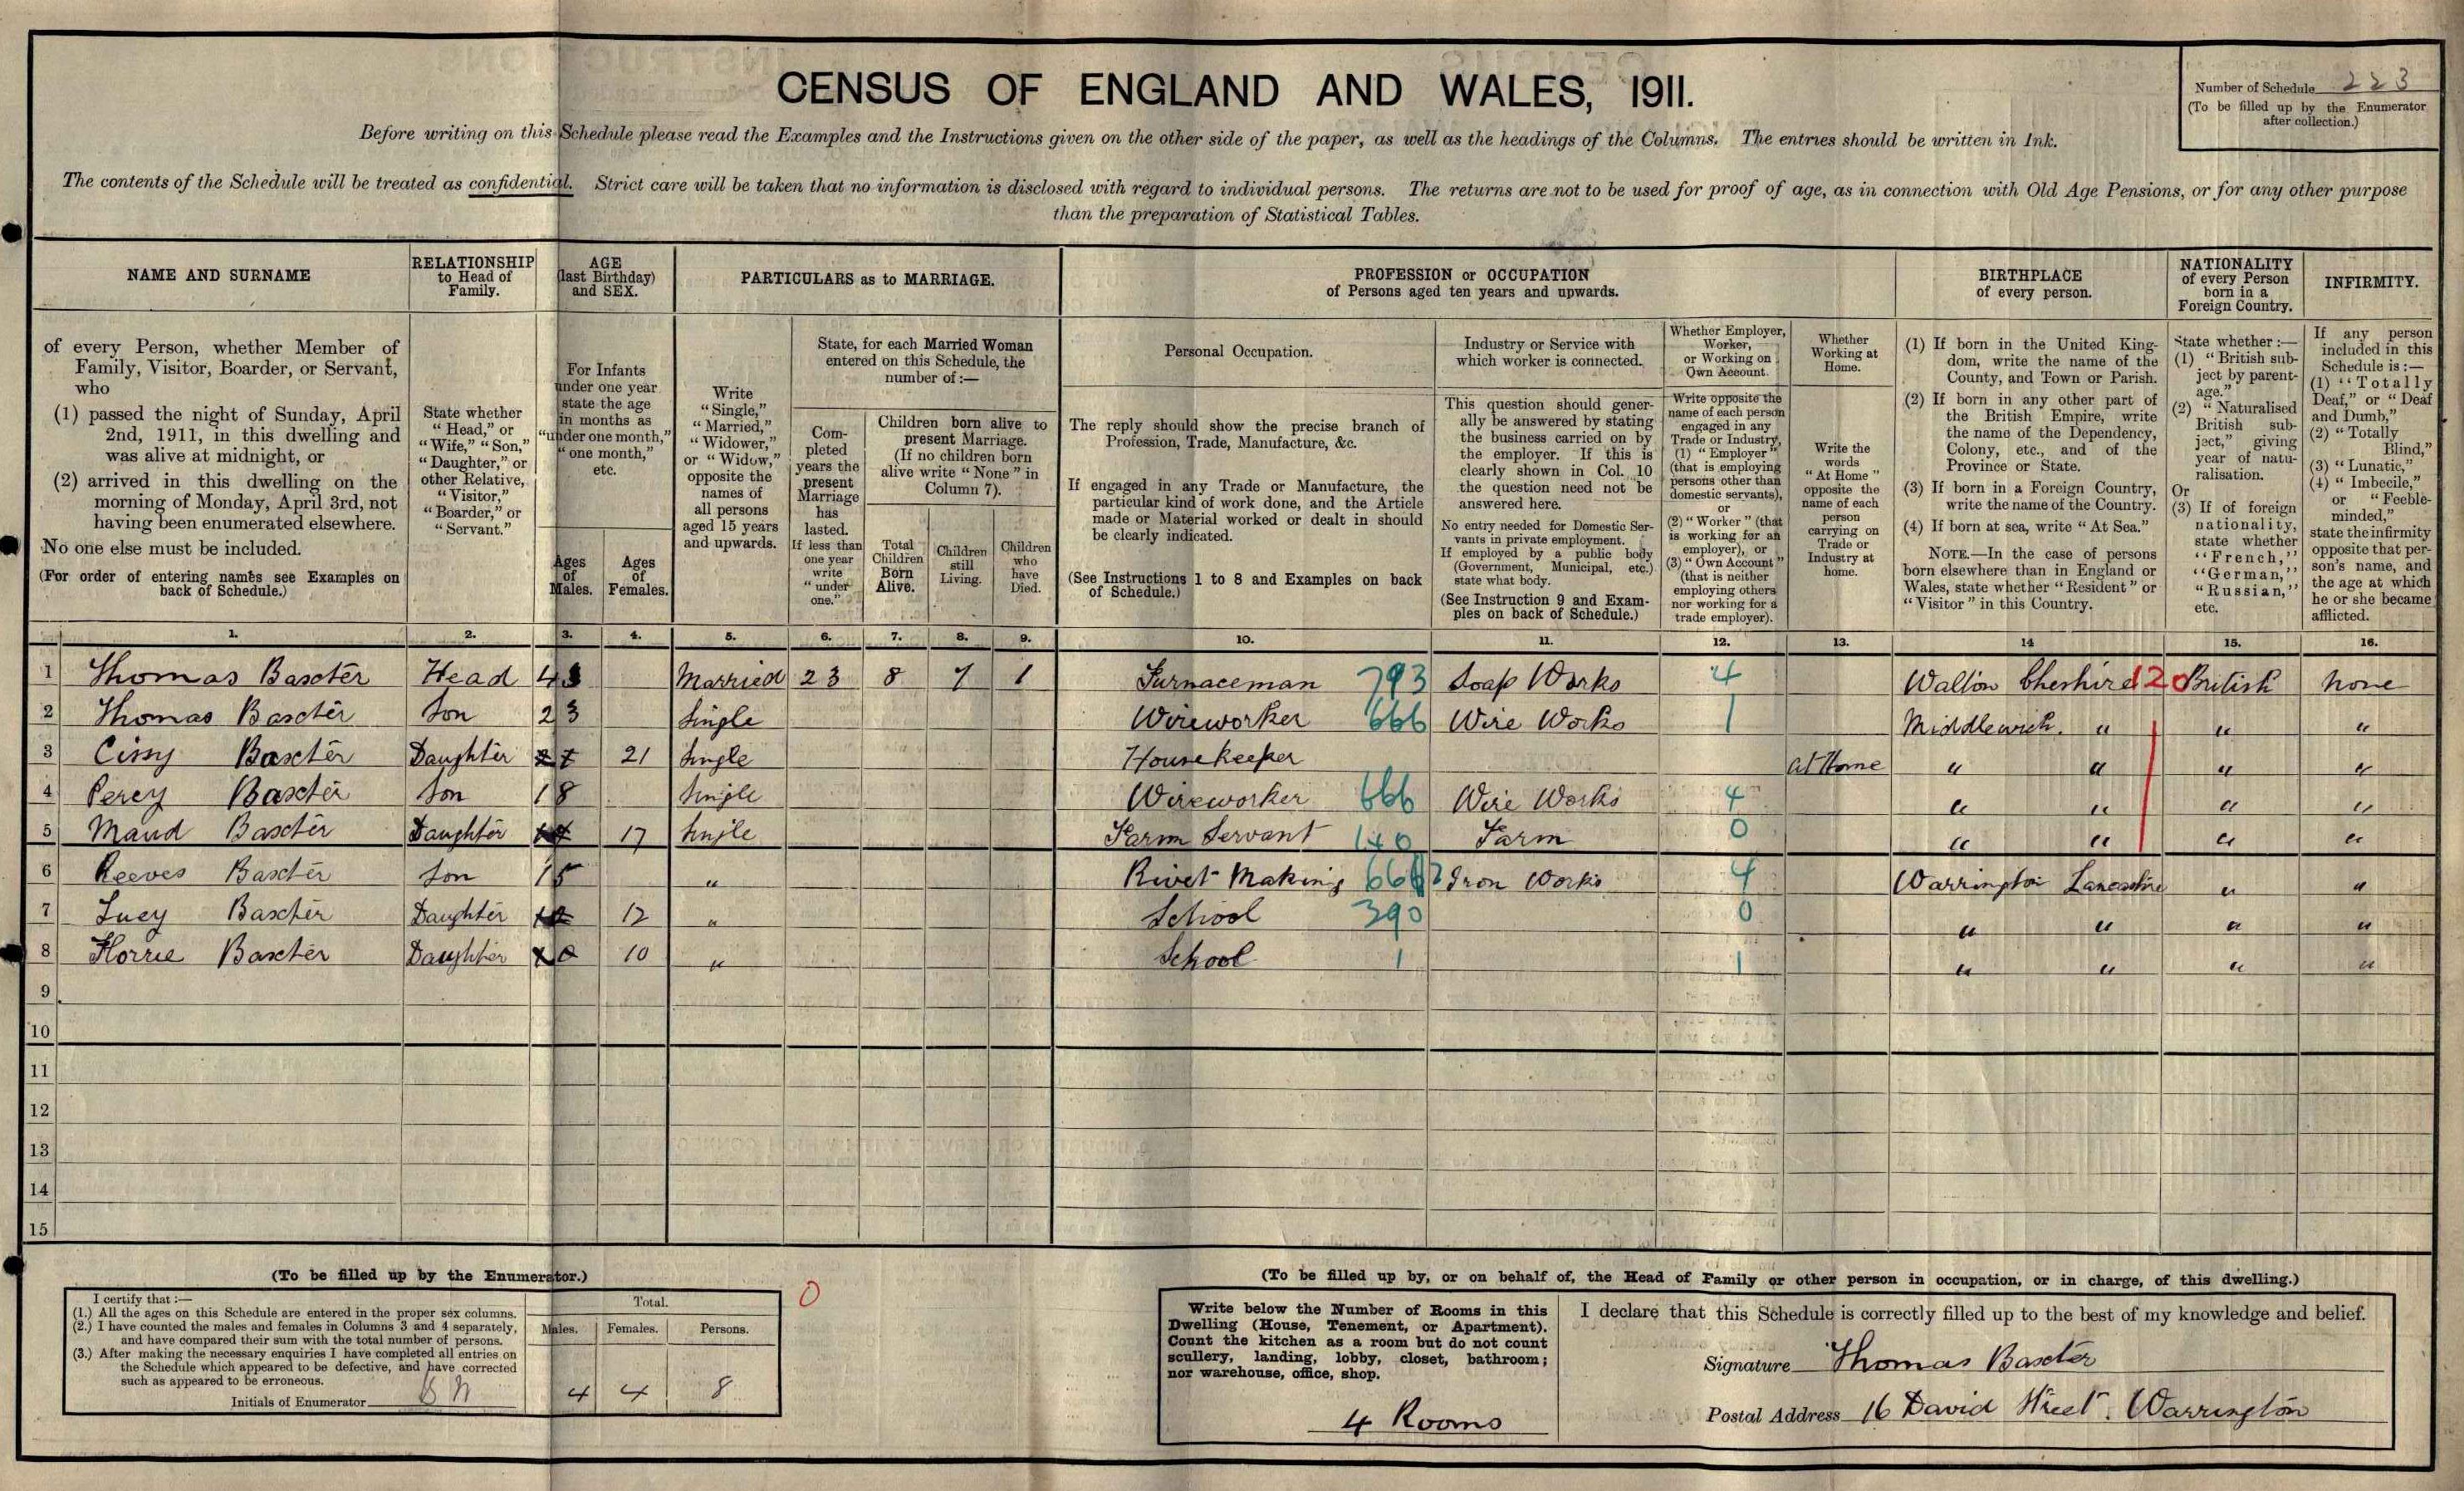 CENSUS OF ENGLAND AND WALES, 1911.
Number of Schedule 223
(To be filled up by the Enumerator
after collection.)
Before writing on this Schedule please read the Examples and the Instructions given on the other side of the paper, as well as the headings of the Columns. The entries should be written in Ink.
The contents of the Schedule will be treated as confidential. Strict care will be taken that no information is disclosed with regard to individual persons. The returns are not to be used for proof of age, as in connection with Old Age Pensions, or for any other purpose
than the preparation of Statistical Tables.
NAME AND SURNAME
of every Person, whether Member of
Family, Visitor, Boarder, or Servant,
who
(1) passed the night of Sunday, April
2nd, 1911, in this dwelling and
was alive at midnight, or
(2) arrived in this dwelling on the
morning of Monday, April 3rd, not
having been enumerated elsewhere.
No one else must be included.
(For order of entering names see Examples on
back of Schedule.)
RELATIONSHIP
to Head of
Family.
State whether
"Head," or
"Wife," "Son,"
"Daughter," or
other Relative,
"Visitor,"
"Boarder," or
"Servant."
AGE
(last Birthday)
and SEX.
For Infants
under one year
state the age
in months as
"under one month,"
"one month,"
etc.
Ages
of
Males.
Ages
of
Females.
PARTICULARS as to MARRIAGE.
Write
"Single,"
"Married,"
"Widower,"
or "Widow,"
opposite the
names of
all persons
aged 15 years
and upwards.
State, for each Married Woman
entered on this Schedule, the
number of:—
Com-
pleted
years the
present
Marriage
has
lasted.
If less than
one year
write
"under
one."
Children born alive to
present Marriage.
(If no children born
alive write "None" in
Column 7).
Total
Children
Born
Alive.
Children
still
Living.
Children
who
have
Died.
PROFESSION or OCCUPATION
of Persons aged ten years and upwards.
Personal Occupation.
The reply should show the precise branch of
Profession, Trade, Manufacture, &c.
If engaged in any Trade or Manufacture, the
particular kind of work done, and the Article
made or Material worked or dealt in should
be clearly indicated.
(See Instructions 1 to 8 and Examples on back
of Schedule.)
Industry or Service with
which worker is connected.
This question should gener-
ally be answered by stating
the business carried on by
the employer. If this is
clearly shown in Col. 10
the question need not be
answered here.
No entry needed for Domestic Ser-
vants in private employment.
If employed by a public body
(Government, Municipal, etc.)
state what body.
(See Instruction 9 and Exam-
ples on back of Schedule.)
Whether Employer,
Worker,
or Working on
Own Account.
Write opposite the
name of each person
engaged in any
Trade or Industry,
(1) "Employer"
(that is employing
persons other than
domestic servants),
or
(2) "Worker" (that
is working for an
employer), or
(3) "Own Account"
(that is neither
employing others
nor working for a
trade employer).
Whether
Working at
Home.
Write the
words
"At Home"
opposite the
name of each
person
carrying on
Trade or
Industry at
home.
BIRTHPLACE
of every person.
(1) If born in the United King-
dom, write the name of the
County, and Town or Parish.
(2) If born in any other part of
the British Empire, write
the name of the Dependency,
Colony, etc., and of the
Province or State.
(3) If born in a Foreign Country,
write the name of the Country.
(4) If born at sea, write "At Sea."
NOTE.—In the case of persons
born elsewhere than in England or
Wales, state whether "Resident" or
"Visitor" in this Country.
NATIONALITY
of every Person
born in a
Foreign Country.
State whether:—
(1) "British sub-
ject by parent-
age."
(2) "Naturalised
British sub-
ject," giving
year of natu-
ralisation.
Or
(3) If of foreign
nationality,
state whether
"French,"
"German,"
"Russian,"
etc.
INFIRMITY.
If any person
included in this
Schedule is:—
(1) "Totally
Deaf," or "Deaf
and Dumb,"
(2) "Totally
Blind,"
(3) "Lunatic,"
(4) "Imbecile,"
or "Feeble-
minded,"
state the infirmity
opposite that per-
son's name, and
the age at which
he or she became
afflicted.
1. 2. 3. 4. 5. 6. 7. 8. 9. 10. 11. 12. 13. 14 15. 16.
1 Thomas Baxter Head Married 23 8 7 1 Furnaceman 793 Soap Works 4 Walton Cheshire 120 British none
2 Thomas Baxter Son 23 Single Wireworker 666 Wire Works 1 Middlewich. " " "
3 Cissy Baxter Daughter 21 Single Housekeeper At Home " " " "
4 Percy Baxter Son 18 Single Wireworker 666 Wire Works 4 " " " "
5 Maud Baxter Daughter 17 Single Farm Servant 140 Farm 0 " " " "
6 Reeves Baxter Son 15 " Rivet Making Iron Works 4 Warrington Lancashire " "
7 Lucy Baxter Daughter 12 " School 390 0 " " " "
8 Florrie Baxter Daughter 10 " School 1 1 " " " "
9
10
11
12
13
14
15
(To be filled up by the Enumerator.)
I certify that:—
(1.) All the ages on this Schedule are entered in the proper sex columns.
(2.) I have counted the males and females in Columns 3 and 4 separately,
and have compared their sum with the total number of persons.
(3.) After making the necessary enquiries I have completed all entries on
the Schedule which appeared to be defective, and have corrected
such as appeared to be erroneous.
Initials of Enumerator
Total.
Males. Females. Persons.
4 4 8
0
(To be filled up by, or on behalf of, the Head of Family or other person in occupation, or in charge, of this dwelling.)
Write below the Number of Rooms in this
Dwelling (House, Tenement, or Apartment).
Count the kitchen as a room but do not count
scullery, landing, lobby, closet, bathroom;
nor warehouse, office, shop.
4 Rooms
I declare that this Schedule is correctly filled up to the best of my knowledge and belief.
Signature Thomas Baxter
Postal Address 16 David Street. Warrington